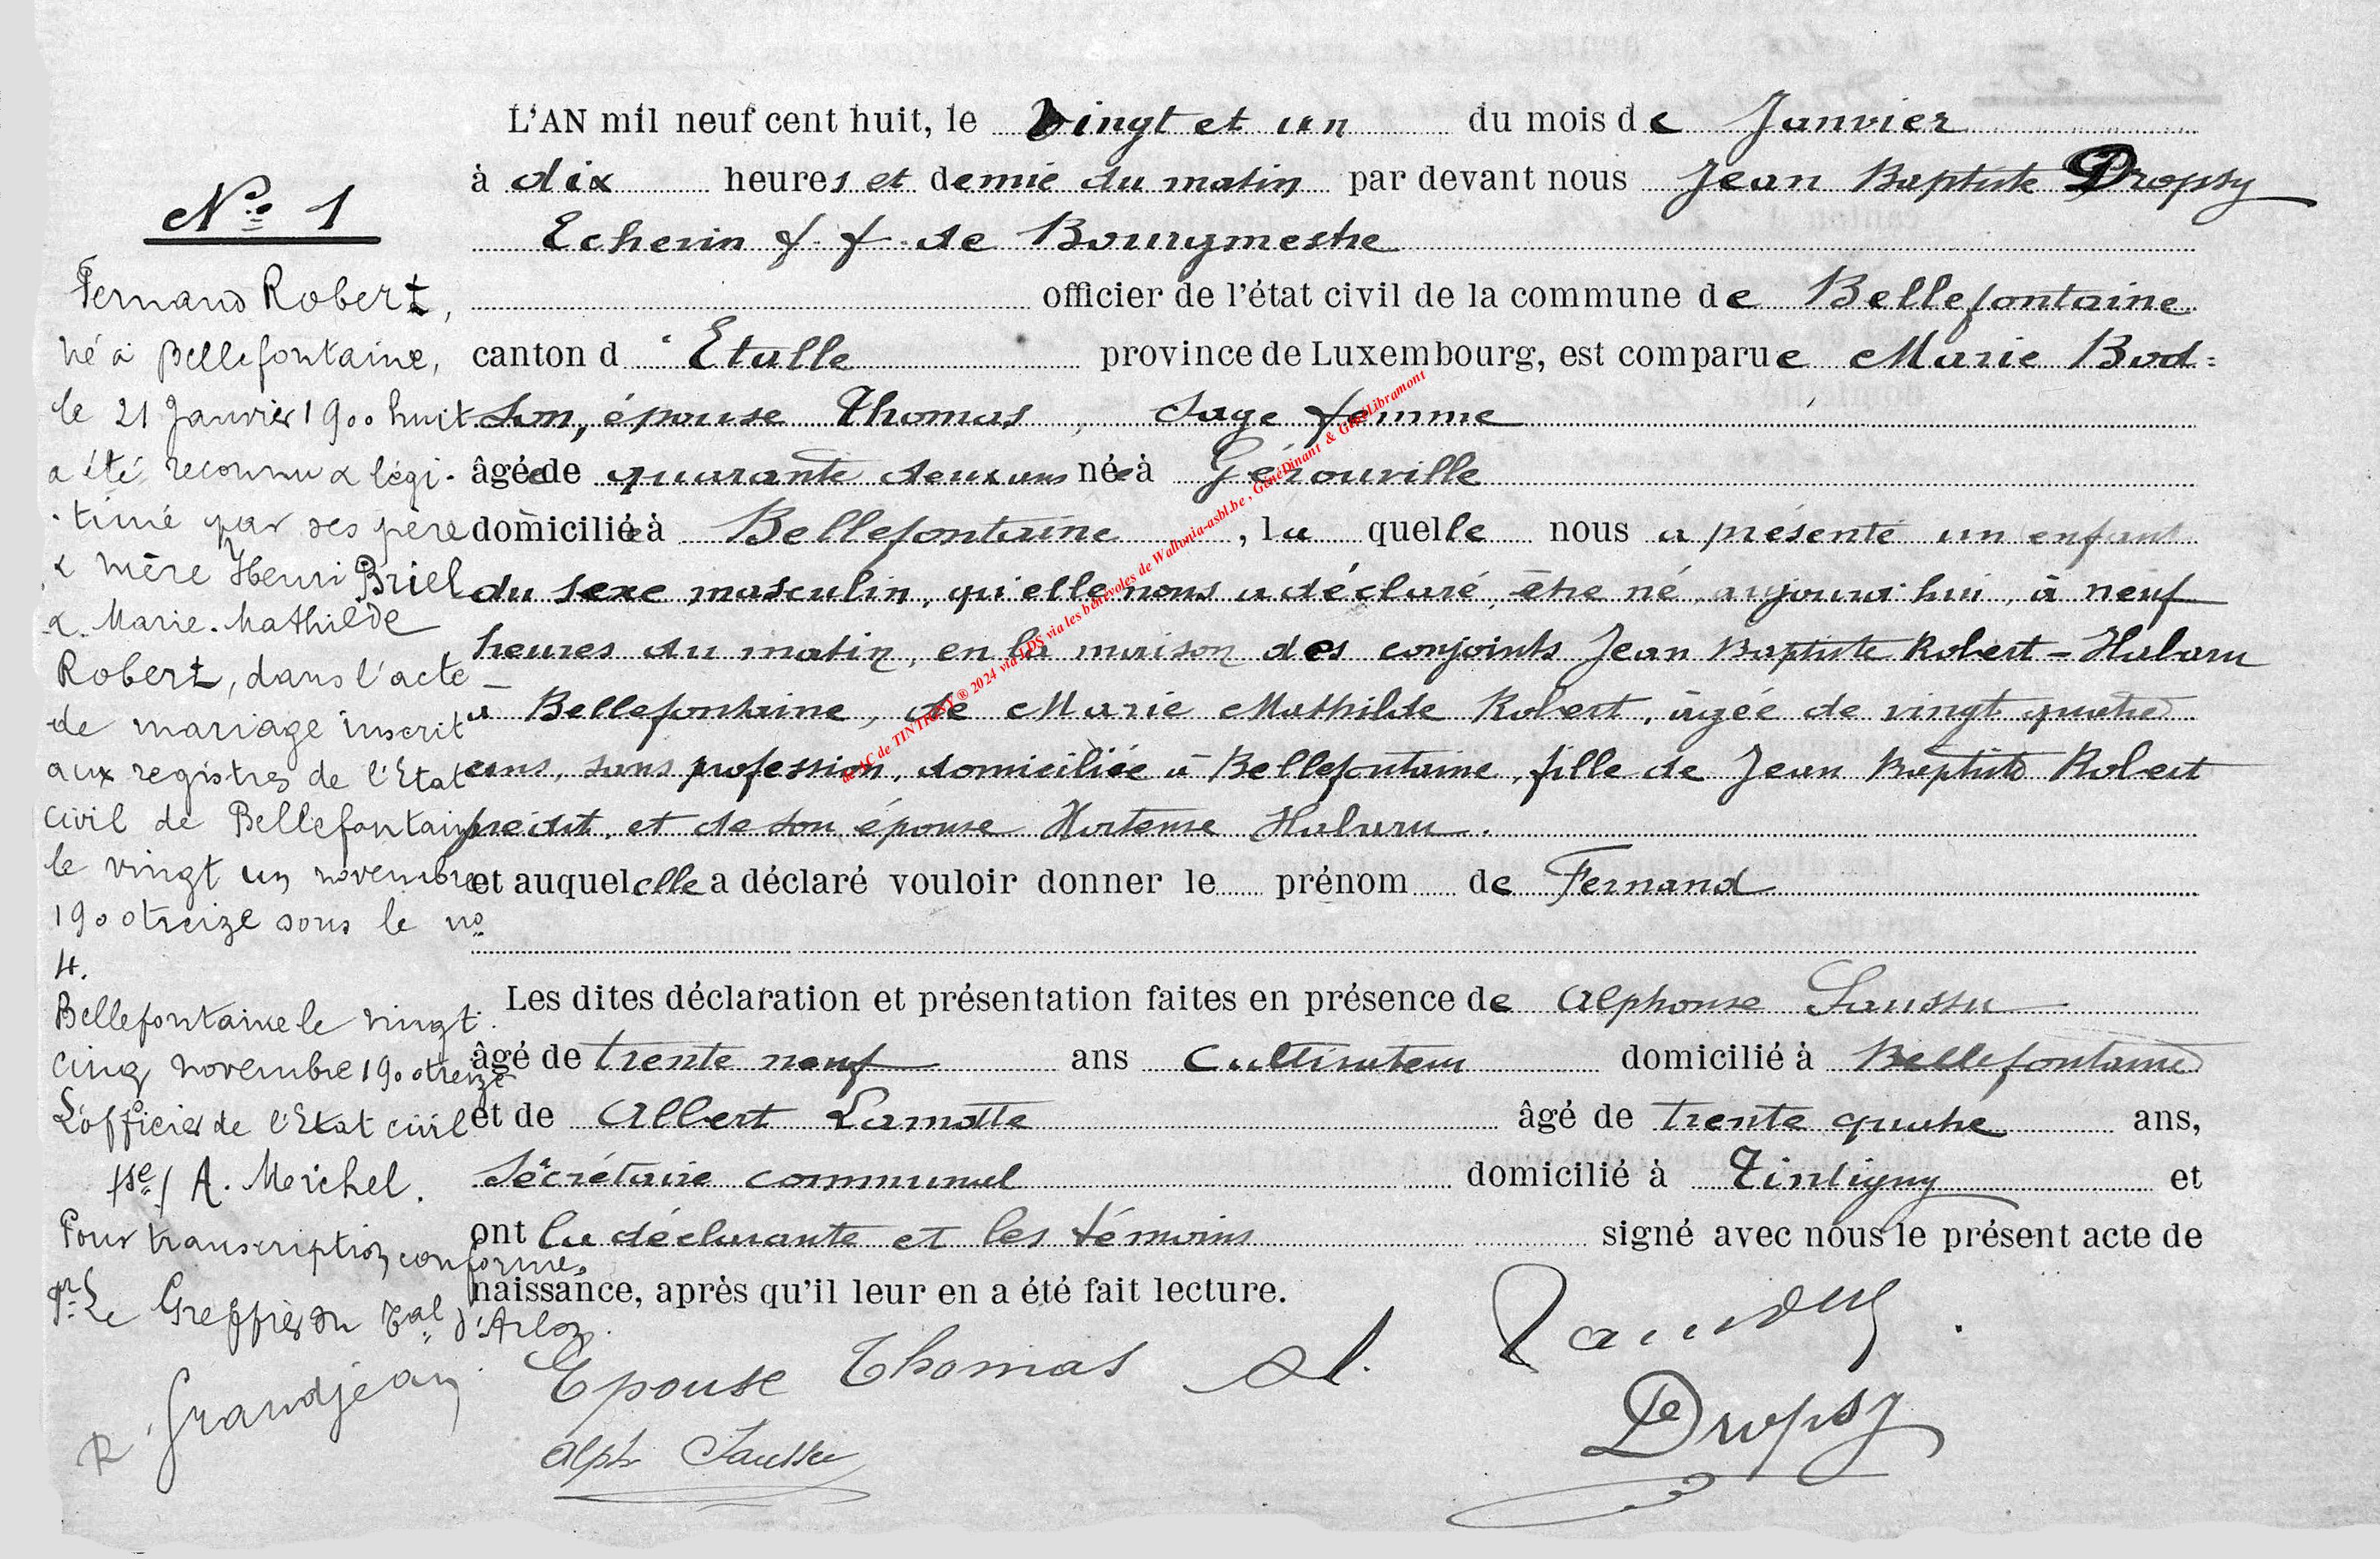 N.o 1
Fernand Robert,
né à Bellefontaine,
le 21 Janvier 1900 huit
a été reconnu & légi-
-timé par ses père
& mère Henri Briel
& Marie-Mathilde
Robert, dans l'acte
de mariage inscrit
aux registres de l'Etat
civil de Bellefontaine
le vingt un novembre
1900 treize sous le no
4.
Bellefontaine le vingt
cinq novembre 1900 treize
L'officier de l'Etat civil
/sé/ A. Meichel.
Pour transcription conforme,
Pr Le Greffier du Tal d'Arlon.
R Grandjean
L'AN mil neuf cent huit, le vingt et un du mois de Janvier
à dix heures et demie du matin par devant nous Jean Baptiste Dropsy
Echevin f. f. de Bourgmestre
officier de l'état civil de la commune de Bellefontaine
canton d'Etalle province de Luxembourg, est comparue Marie Bod=
son, épouse Thomas, sage femme
âgée de quarante deux ans née à Gérouville
domiciliée à Bellefontaine, la quelle nous a présenté un enfant
du sexe masculin, qu'elle nous a déclaré, être né, aujourd'hui, à neuf
heures du matin, en la maison des conjoints Jean Baptiste Robert - Habaru
à Bellefontaine, de Marie Mathilde Robert, âgée de vingt quatre
ans, sans profession, domiciliée à Bellefontaine, fille de Jean Baptiste Robert
prédit, et de son épouse Hortense Habaru.
et auquel elle a déclaré vouloir donner le prénom de Fernand
Les dites déclaration et présentation faites en présence de Alphonse Saussu
âgé de trente neuf ans Cultivateur domicilié à Bellefontaine
et de Albert Lamotte âgé de trente quatre ans,
Secrétaire communal domicilié à Tintigny et
ont la déclarante et les témoins signé avec nous le présent acte de
naissance, après qu'il leur en a été fait lecture.
Epouse Thomas
Alph Saussu
Dropsy
de AC de TINTIGNY ® 2024 via LDS via les bénévoles de Wallonia-asbl.be , GénéDinant & GénéLibramont